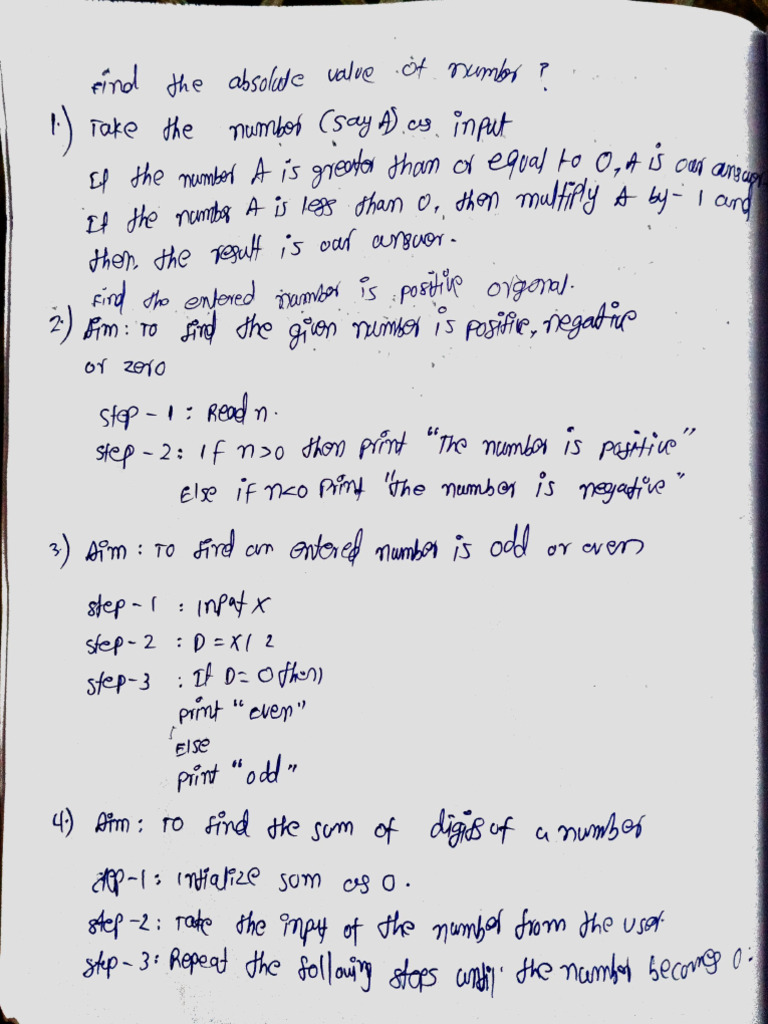 Find the absolute value of number ?
1.) Take the number (say A) as input
If the number A is greater than or equal to 0, A is our answer.
If the number A is less than 0, then multiply A by -1 and
then, the result is our answer.
Find the entered number is positive orgenal.
2.) Aim : To find the given number is positive, negative
or zero
step - 1 : Read n.
step - 2 : If n>0 then print "The number is positive"
Else if n<0 print "the number is negative"
3.) Aim : To find an entered number is odd or even
step - 1 : input X
step - 2 : D = X / 2
step - 3 : If D = 0 then
print "even"
Else
print "odd"
4.) Aim : To find the sum of digits of a number
step - 1 : intialize sum as 0.
step - 2 : Take the input of the number from the user.
step - 3 : Repeat the following steps until the number becomes 0 :